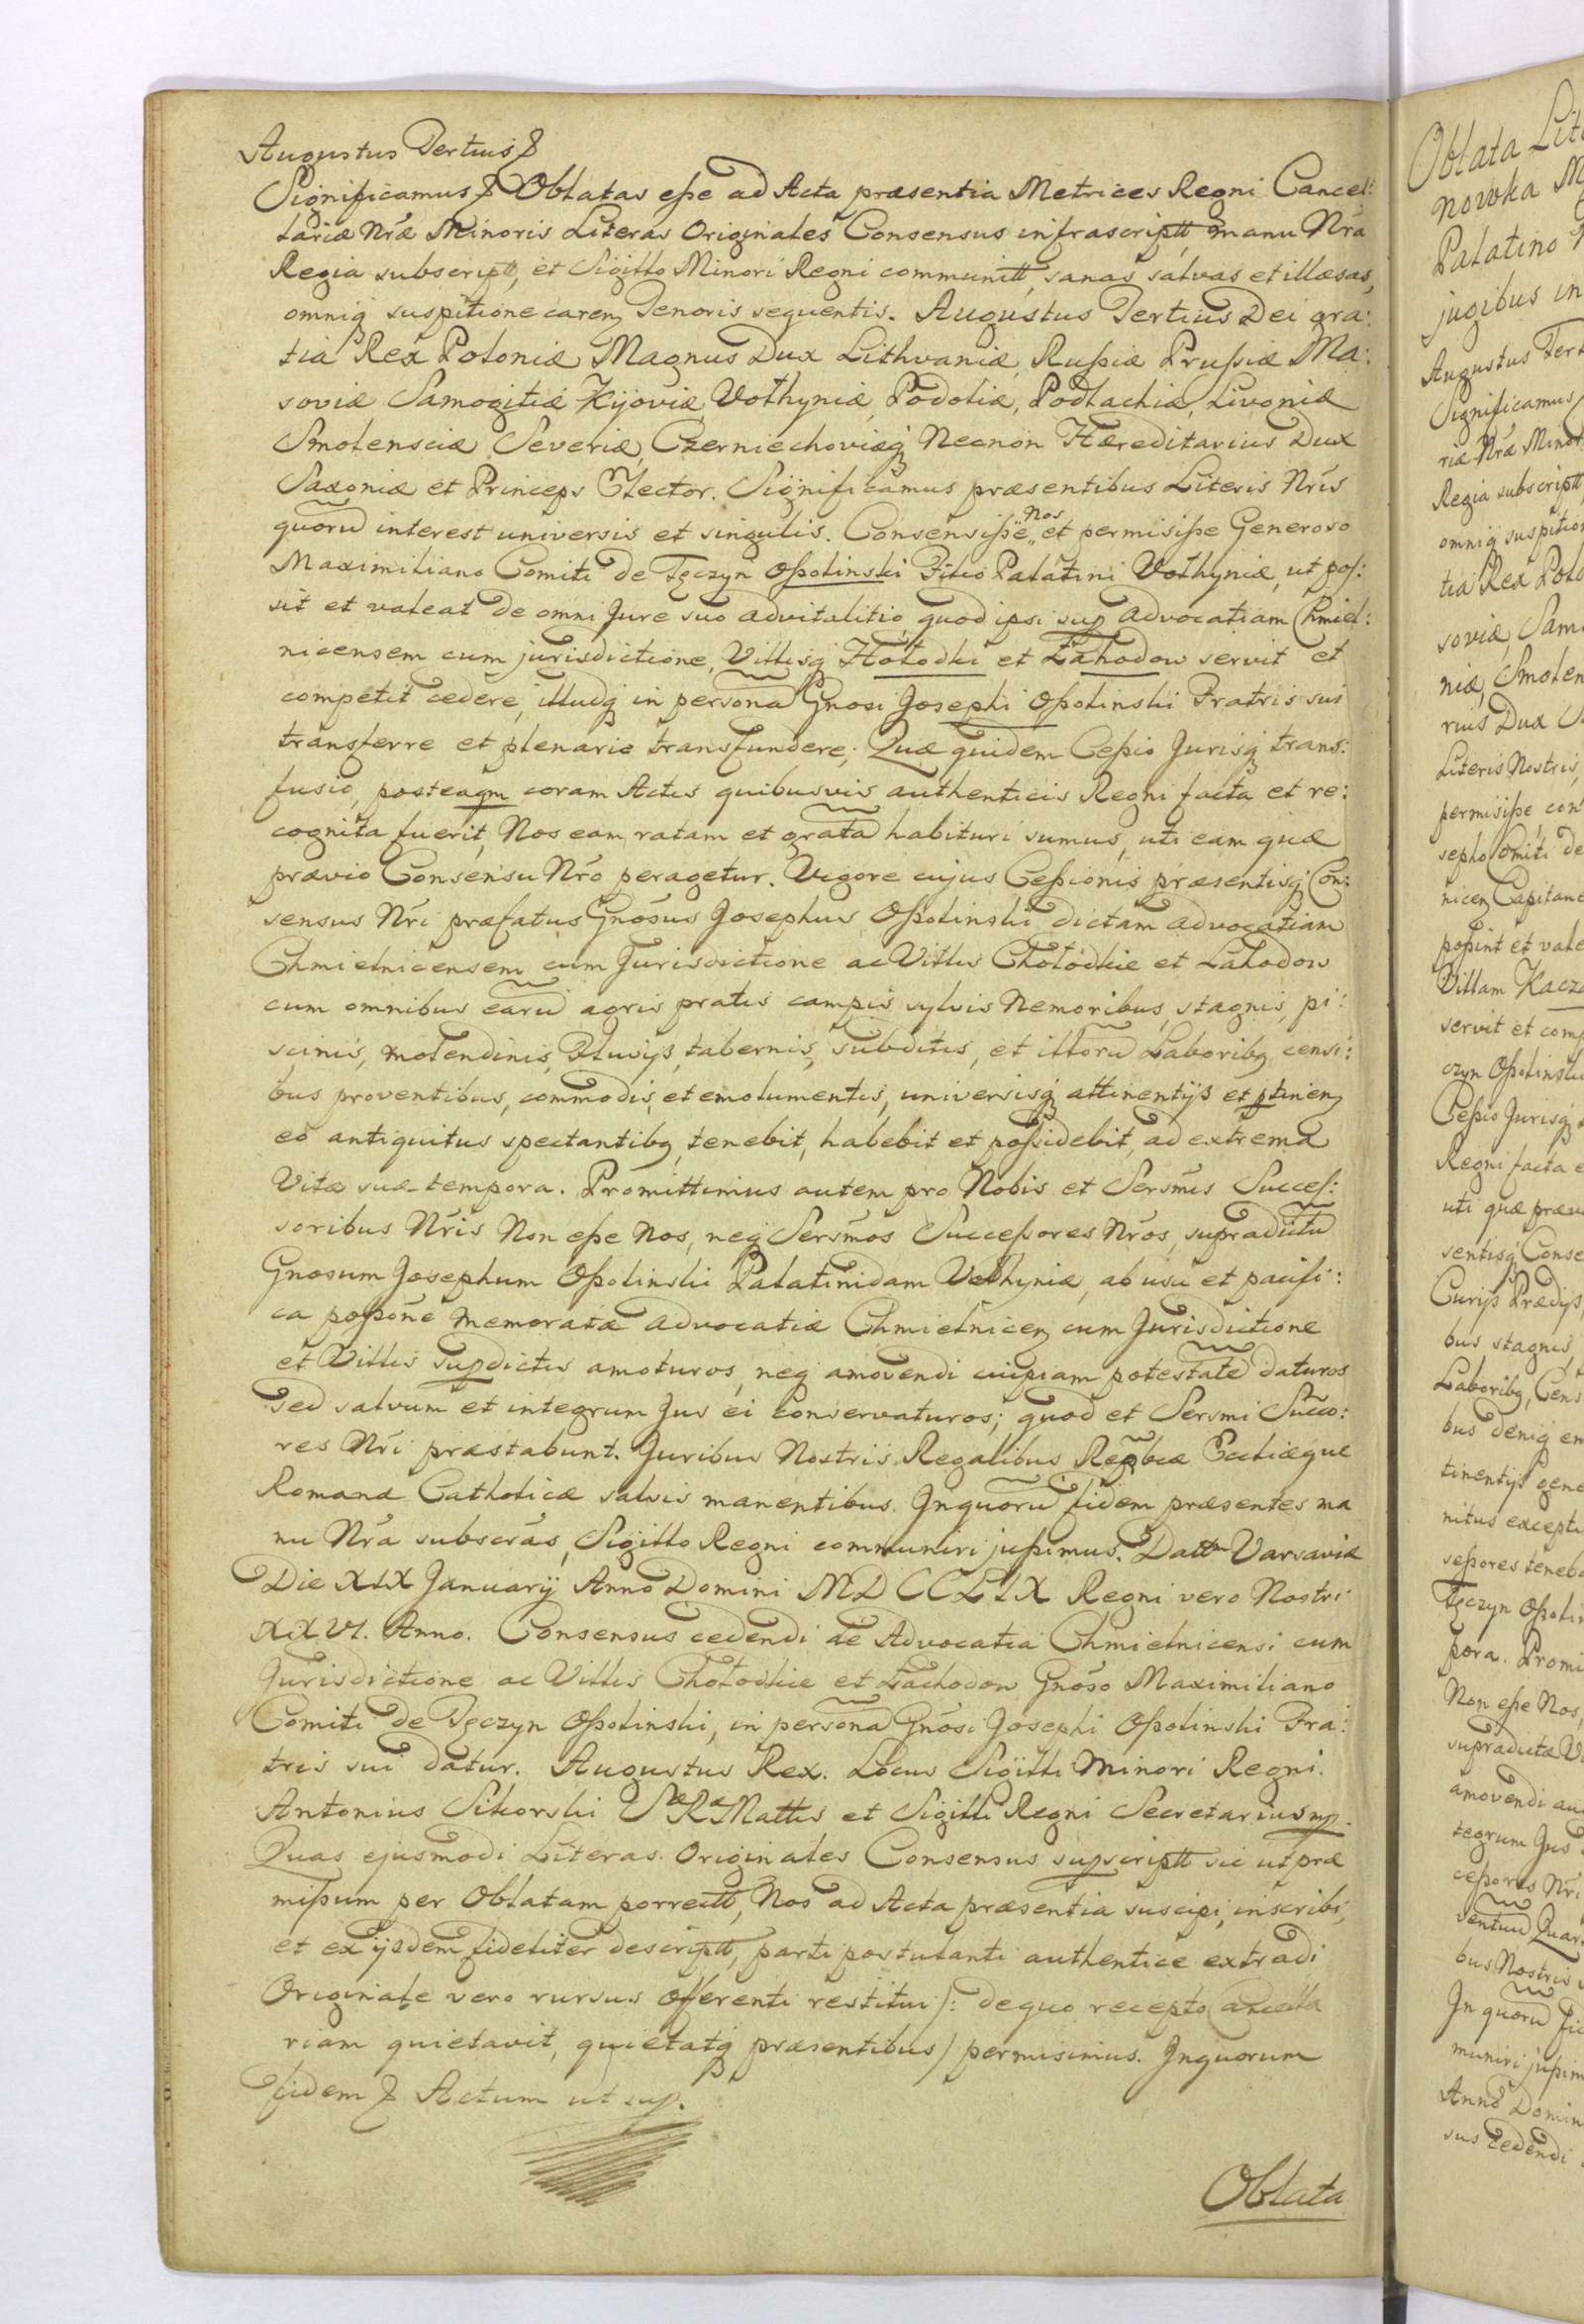 Augustus Tertius &
Significamus & Oblatas esse ad Acta præsentia Metrices Regni Cancel:
lariæ Nræ Minoris Literas Originales Consensus infrascriptt, manu Nra
Regia subscriptt, et Sigillo Minori Regni communitt, sanas salvas et illæsas,
omniq suspitione caren Tenoris sequentis. Augustus Tertius Dei gra:
tia Rex Poloniæ Magnus Dux Lithvaniæ, Russiæ Prussiæ Ma:
soviæ Samogitiæ Kijoviæ, Volhyniæ, Podoliæ, Podlachiæ, Livoniæ
Smolensciæ Severiæ, Czerniechoviæq Necnon Hæreditarius Dux
Saxoniæ et Princeps Elector. Significamus præsentibus Literis Nris
quoru interest universis et singulis. Consensisse Nos et permisisse Generoso
Maximiliano Comiti de Tęczyn Ossolinski Filio Palatini Volhyniæ, ut pos:
sit et valeat de omni Jure suo advitalitio, quod ipsi sup Advocatiam Chmiel:
nicensem cum jurisdictione, Villisq Hołodki et Łahodow servit et
competit cedere, illudq in persona Gnosi Josephi Ossolinski Fratris sui
transferre et plenarie transfundere; Quæ quidem Cessio Jurisq trans:
fusio, posteaqm coram Actis quibusvis authenticis Regni facta et re:
cognita fuerit, Nos eam ratam et grata habituri sumus, uti eam quæ
prævio Consensu Nro peragetur. Vigore cujus Cessionis præsentisq Con:
sensus Nri præfatus Gnosus Josephus Ossolinski dictam Advocatiam
Chmielnicensem cum Jurisdictione ac Villis Chołodkie et Łahodow
cum omnibus earu agris pratis campis sylvis Nemoribus, stagnis, pi:
scinis, molendinis, Fluvijs, tabernis, subditis, et illoru Laboribq, censi:
bus proventibus, commodis, et emolumentis, universisq attinentijs et ptinen
eo antiquitus spectantibq, tenebit, habebit et possidebit, ad extrema
Vitæ suæ tempora. Promittimus autem pro Nobis et Sersmis Succes:
soribus Nris Non esse Nos, neq Sersmos Successores Nros, supradictu
Gnosum Josephum Ossolinski Palatinidam Volhyniæ, ab usu et pacifi:
ca possone memoratæ Advocatiæ Chmielnicen cum Jurisdictione
et Villis supdictis amoturos, neq amovendi cuipiam potestate daturos
sed salvum et integrum Jus ei conservaturos; quod et Sersmi Succo:
res Nri præstabunt. Juribus Nostris Regalibus Repbcæ Eccliæque
Romanæ Catholicæ salvis manentibus. In quoru fidem præsentes ma
nu Nra subscras, Sigillo Regni communiri jussimus. Dattm Varsaviæ
Die XIX January Anno Domini MDCCLIX Regni vero Nostri
XXVI. Anno. Consensus cedendi de Advocatia Chmielnicensi cum
Jurisdictione ac Villis Chołodkie et Łachodow Gnoso Maximiliano
Comiti de Tęczyn Ossolinski, in persona Gnosi Josephi Ossolinski Fra:
tris sui datur. Augustus Rex. Locus Sigilli Minori Regni.
Antonius Sikorski SæRæ Mattis et Sigilli Regni Secretarius mp.
Quas ejusmodi Literas Originales Consensus supscriptt sic ut præ
missum per Oblatam porrectt, Nos ad Acta præsentia suscipi, inscribi,
et ex ijsdem fideliter descriptt, parti postulanti authentice extradi
Originale vero rursus offerenti restitui /: de quo recepto Cancella
riam quietavit, quietatq præsentibus / permisimus. In quorum
fidem & Actum ut sup.
Oblata
Oblata Lit
nowka M
Palatino
jugibus in
Augustus Tert
Significamus
riæ Nræ Minor
Regia subscriptt
omniq suspition
tia Rex Polo
soviæ, Sam
niæ, Smolen
rius Dux
Literis Nostris,
permisisse, con
sepho Comiti de
nicen Capitane
possint et vale
Villam Kacz
servit et comp
czyn Ossolinski
Cessio Jurisq
Regni facta e
uti quæ præv
sentisq Conse
Curijs Prædijs,
bus stagnis,
Laboribq, Cens
bus deniq em
tinentijs gene
nitus excepti
sessores teneb
Tęczyn Ossolin
pora. Promi
Non esse Nos,
supradictæ V
amovendi au
tegrum Jus
cessores Nri
ventuu Quar
bus Nostris
In quoru fi
muniri jussim
Anno Domin
sus cedendi